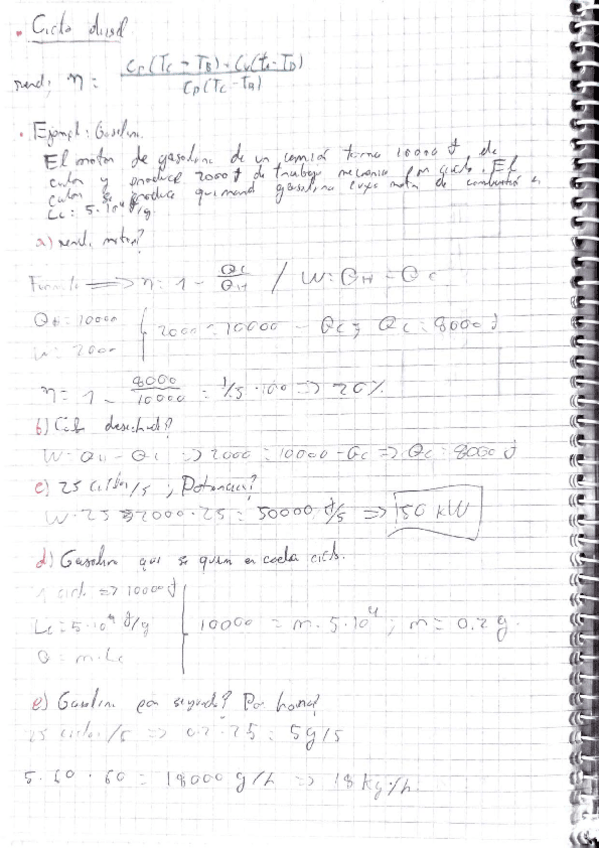 • Ciclo diesel
rend; η = Cp(Tc - TB) - Cv(tc - TD) / Cp(Tc - TB)
• Ejempl: Gasolina.
El motor de gasolina de un camión toma 10000 J de
calor y produce 2000 J de trabajo mecanico por ciclo. El
calor se produce quemand gasolina motor de combustió
Lc: 5·10⁴ J/g.
a) rend. motor?
Formula ⟹ η: 1 - Qc/QH / W: QH - Qc
QH: 10000
W: 2000
2000 = 10000 - Qc; Qc: 8000 J
η = 1 - 8000/10000 = 1/5 · 100 => 20%
b) desechad?
W = QH - Qc => 2000 = 10000 - Qc => Qc: 8000 J
c) 25 ciclos/s; Potencia?
W · 25 = 2000 · 25 = 50000 J/s => 50 kW
d) Gasolin que se quem en cada ciclo.
1 ciclo => 10000 J
Lc = 5·10⁴ J/g
Q = m·Lc
10000 = m · 5·10⁴; m = 0.2 g.
e) Gasolin por segundo? Por hora?
25 ciclos/s => 0.2 · 25 = 5 g/s
5 · 60 · 60 = 18000 g/h => 18 kg/h.